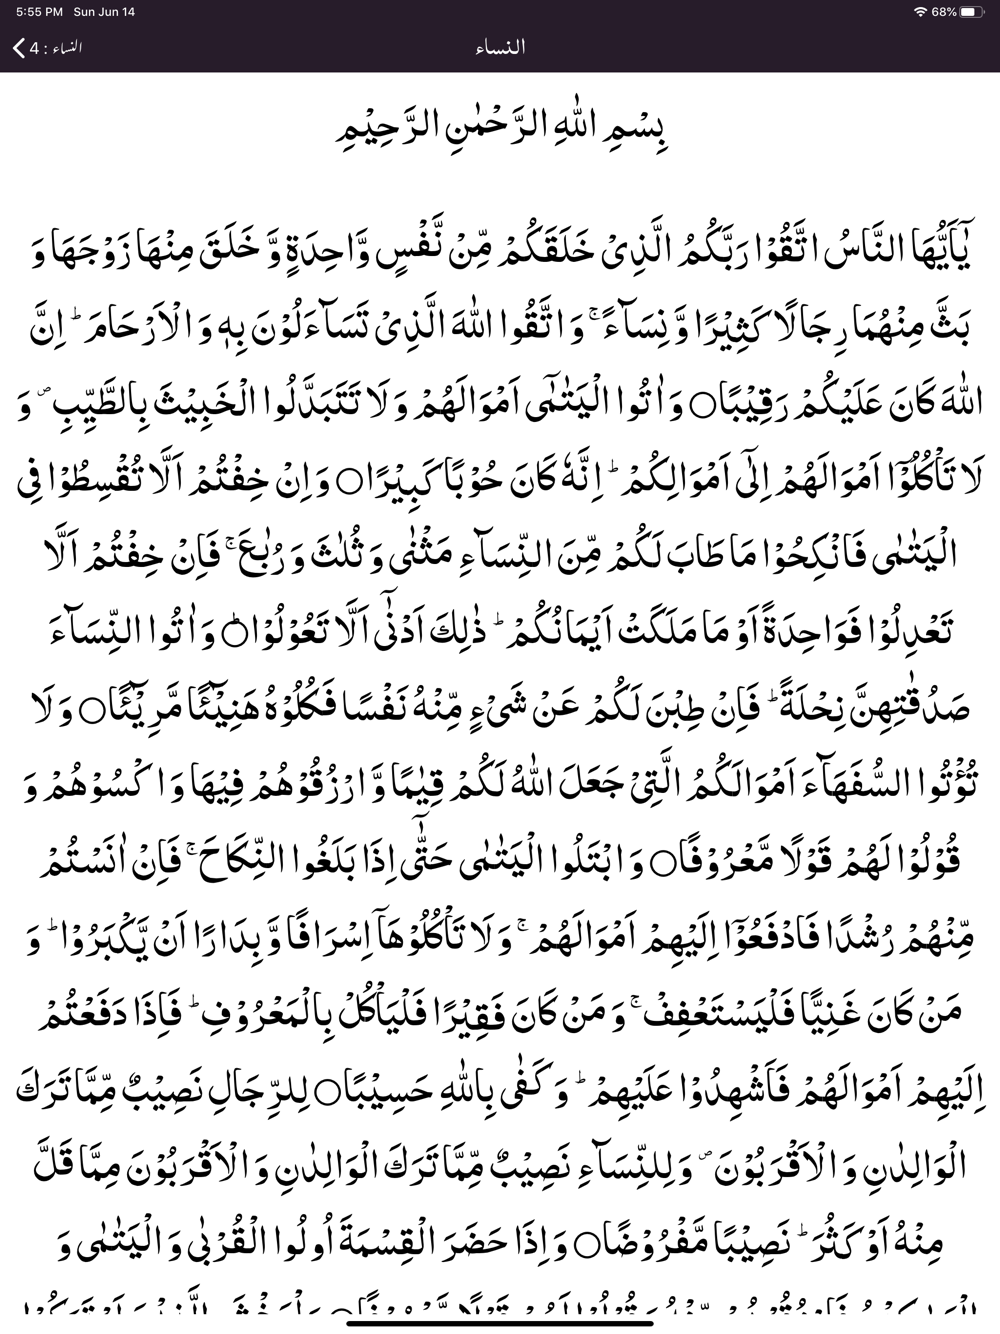 5:55 PM Sun Jun 14 68%
النساء : 4 النساء
بِسْمِ اللّٰهِ الرَّحْمٰنِ الرَّحِيْمِ
يٰۤاَيُّهَا النَّاسُ اتَّقُوْا رَبَّكُمُ الَّذِيْ خَلَقَكُمْ مِّنْ نَّفْسٍ وَّاحِدَةٍ وَّ خَلَقَ مِنْهَا زَوْجَهَا وَ
بَثَّ مِنْهُمَا رِجَالًا كَثِيْرًا وَّ نِسَآءًۚ وَ اتَّقُوا اللّٰهَ الَّذِيْ تَسَآءَلُوْنَ بِهٖ وَ الْاَرْحَامَؕ اِنَّ
اللّٰهَ كَانَ عَلَيْكُمْ رَقِيْبًا○ وَ اٰتُوا الْيَتٰمٰۤى اَمْوَالَهُمْ وَ لَا تَتَبَدَّلُوا الْخَبِيْثَ بِالطَّيِّبِ۪ وَ
لَا تَاْكُلُوْۤا اَمْوَالَهُمْ اِلٰۤى اَمْوَالِكُمْؕ اِنَّهٗ كَانَ حُوْبًا كَبِيْرًا○ وَ اِنْ خِفْتُمْ اَلَّا تُقْسِطُوْا فِي
الْيَتٰمٰى فَانْكِحُوْا مَا طَابَ لَكُمْ مِّنَ النِّسَآءِ مَثْنٰى وَ ثُلٰثَ وَ رُبٰعَۚ فَاِنْ خِفْتُمْ اَلَّا
تَعْدِلُوْا فَوَاحِدَةً اَوْ مَا مَلَكَتْ اَيْمَانُكُمْؕ ذٰلِكَ اَدْنٰۤى اَلَّا تَعُوْلُوْا○ؕ وَ اٰتُوا النِّسَآءَ
صَدُقٰتِهِنَّ نِحْلَةًؕ فَاِنْ طِبْنَ لَكُمْ عَنْ شَيْءٍ مِّنْهُ نَفْسًا فَكُلُوْهُ هَنِيْٓـًٔا مَّرِيْٓـًٔا○ وَ لَا
تُؤْتُوا السُّفَهَآءَ اَمْوَالَكُمُ الَّتِيْ جَعَلَ اللّٰهُ لَكُمْ قِيٰمًا وَّ ارْزُقُوْهُمْ فِيْهَا وَ اكْسُوْهُمْ وَ
قُوْلُوْا لَهُمْ قَوْلًا مَّعْرُوْفًا○ وَ ابْتَلُوا الْيَتٰمٰى حَتّٰۤى اِذَا بَلَغُوا النِّكَاحَۚ فَاِنْ اٰنَسْتُمْ
مِّنْهُمْ رُشْدًا فَادْفَعُوْۤا اِلَيْهِمْ اَمْوَالَهُمْۚ وَ لَا تَاْكُلُوْهَاۤ اِسْرَافًا وَّ بِدَارًا اَنْ يَّكْبَرُوْاؕ وَ
مَنْ كَانَ غَنِيًّا فَلْيَسْتَعْفِفْۚ وَ مَنْ كَانَ فَقِيْرًا فَلْيَاْكُلْ بِالْمَعْرُوْفِؕ فَاِذَا دَفَعْتُمْ
اِلَيْهِمْ اَمْوَالَهُمْ فَاَشْهِدُوْا عَلَيْهِمْؕ وَ كَفٰى بِاللّٰهِ حَسِيْبًا○ لِلرِّجَالِ نَصِيْبٌ مِّمَّا تَرَكَ
الْوَالِدٰنِ وَ الْاَقْرَبُوْنَ۪ وَ لِلنِّسَآءِ نَصِيْبٌ مِّمَّا تَرَكَ الْوَالِدٰنِ وَ الْاَقْرَبُوْنَ مِمَّا قَلَّ
مِنْهُ اَوْ كَثُرَؕ نَصِيْبًا مَّفْرُوْضًا○ وَ اِذَا حَضَرَ الْقِسْمَةَ اُولُوا الْقُرْبٰى وَ الْيَتٰمٰى وَ